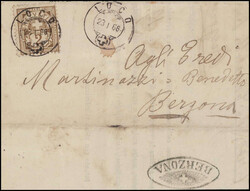 LOCO
LOCO
23 I 66
Agli Eredi
Martinazzi Benedetto
Berzona
BERZONA